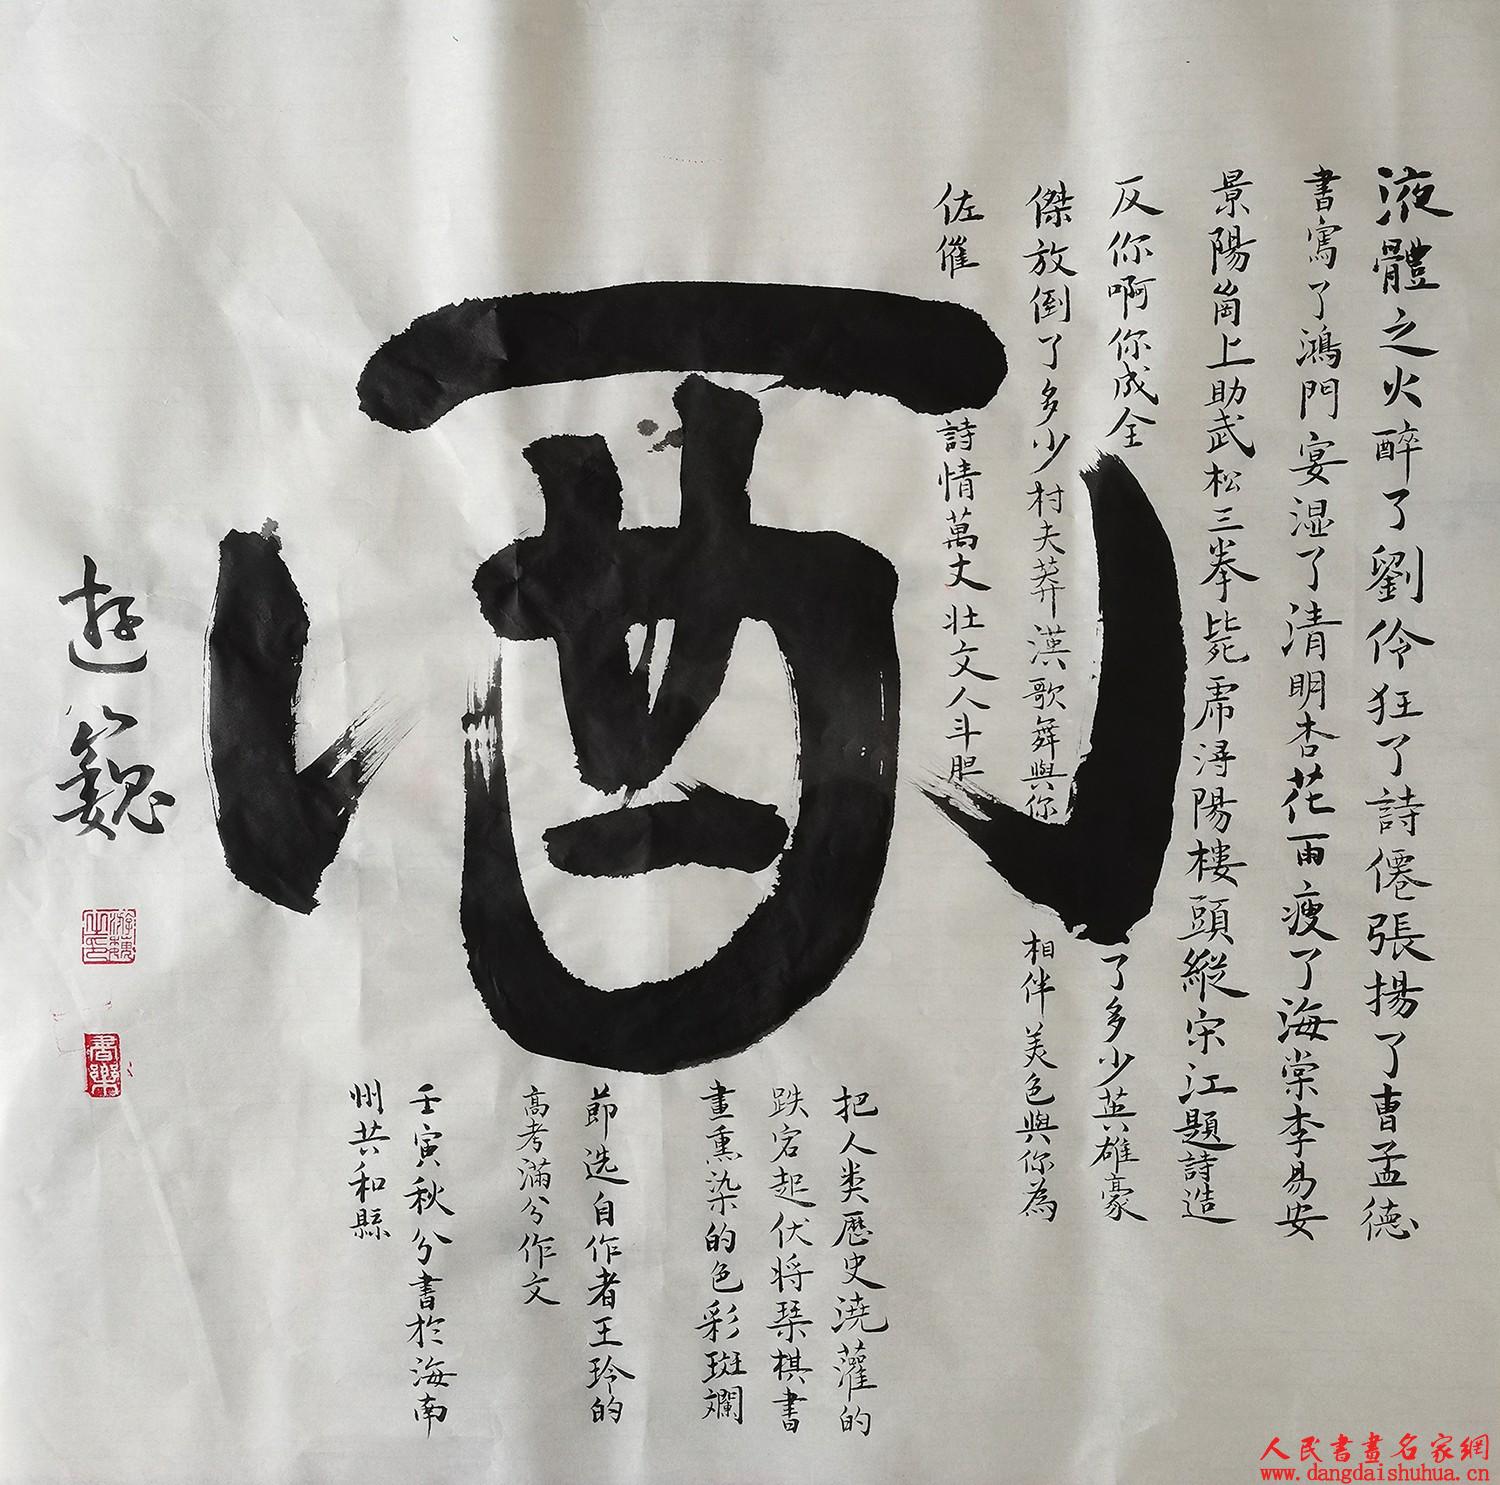 酒
液體之火醉了劉伶狂了詩僊張揚了曹孟德
書寫了鴻門宴湿了清明杏花雨瘦了海棠李易安
景陽崗上助武松三拳毙虎浔陽樓頭縱宋江題詩造
反你啊你成全了多少英雄豪
傑放倒了多少村夫莽漢歌舞與你相伴美色與你為
佐催詩情萬丈壯文人斗胆
把人类歷史澆灌的
跌宕起伏将琴棋書
畫熏染的色彩斑斕
節选自作者王玲的
高考滿分作文
壬寅秋分書於海南
州共和縣
遊巍
書樂
人民書畫名家網
www.dangdaishuhua.cn